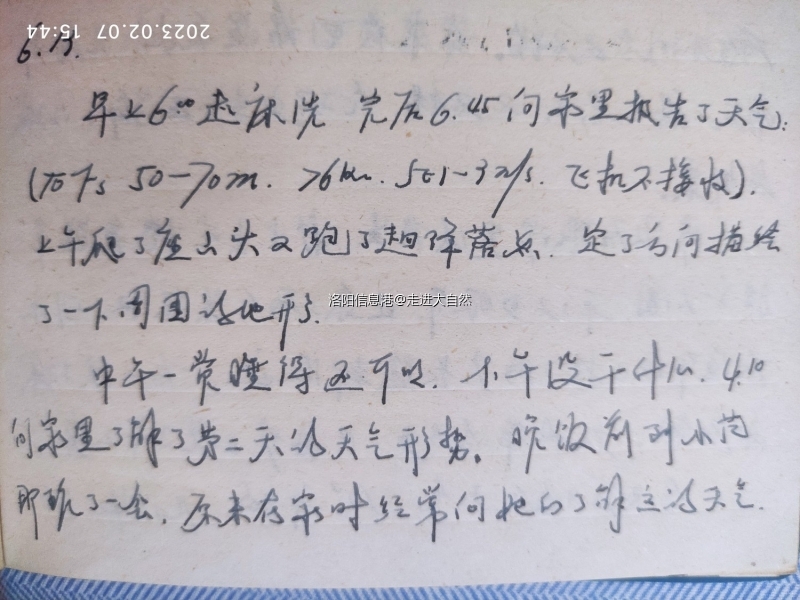 2023.02.07 15:44
6.13.
早上6:00起床洗完后6.45向家里报告了天气:
50-70m. >6km. 1-3m/s. 飞机不接收).
上午爬了座山头又跑了趟降落点. 定了方向描绘
了一下周围的地形.
洛阳信息港@走进大自然
中午一觉睡得还可以. 下午没干什么. 4.10
向家里了解了第二天的天气形势。晚饭前到水文
那玩了一会, 原来在家时经常向他们了解这的天气.